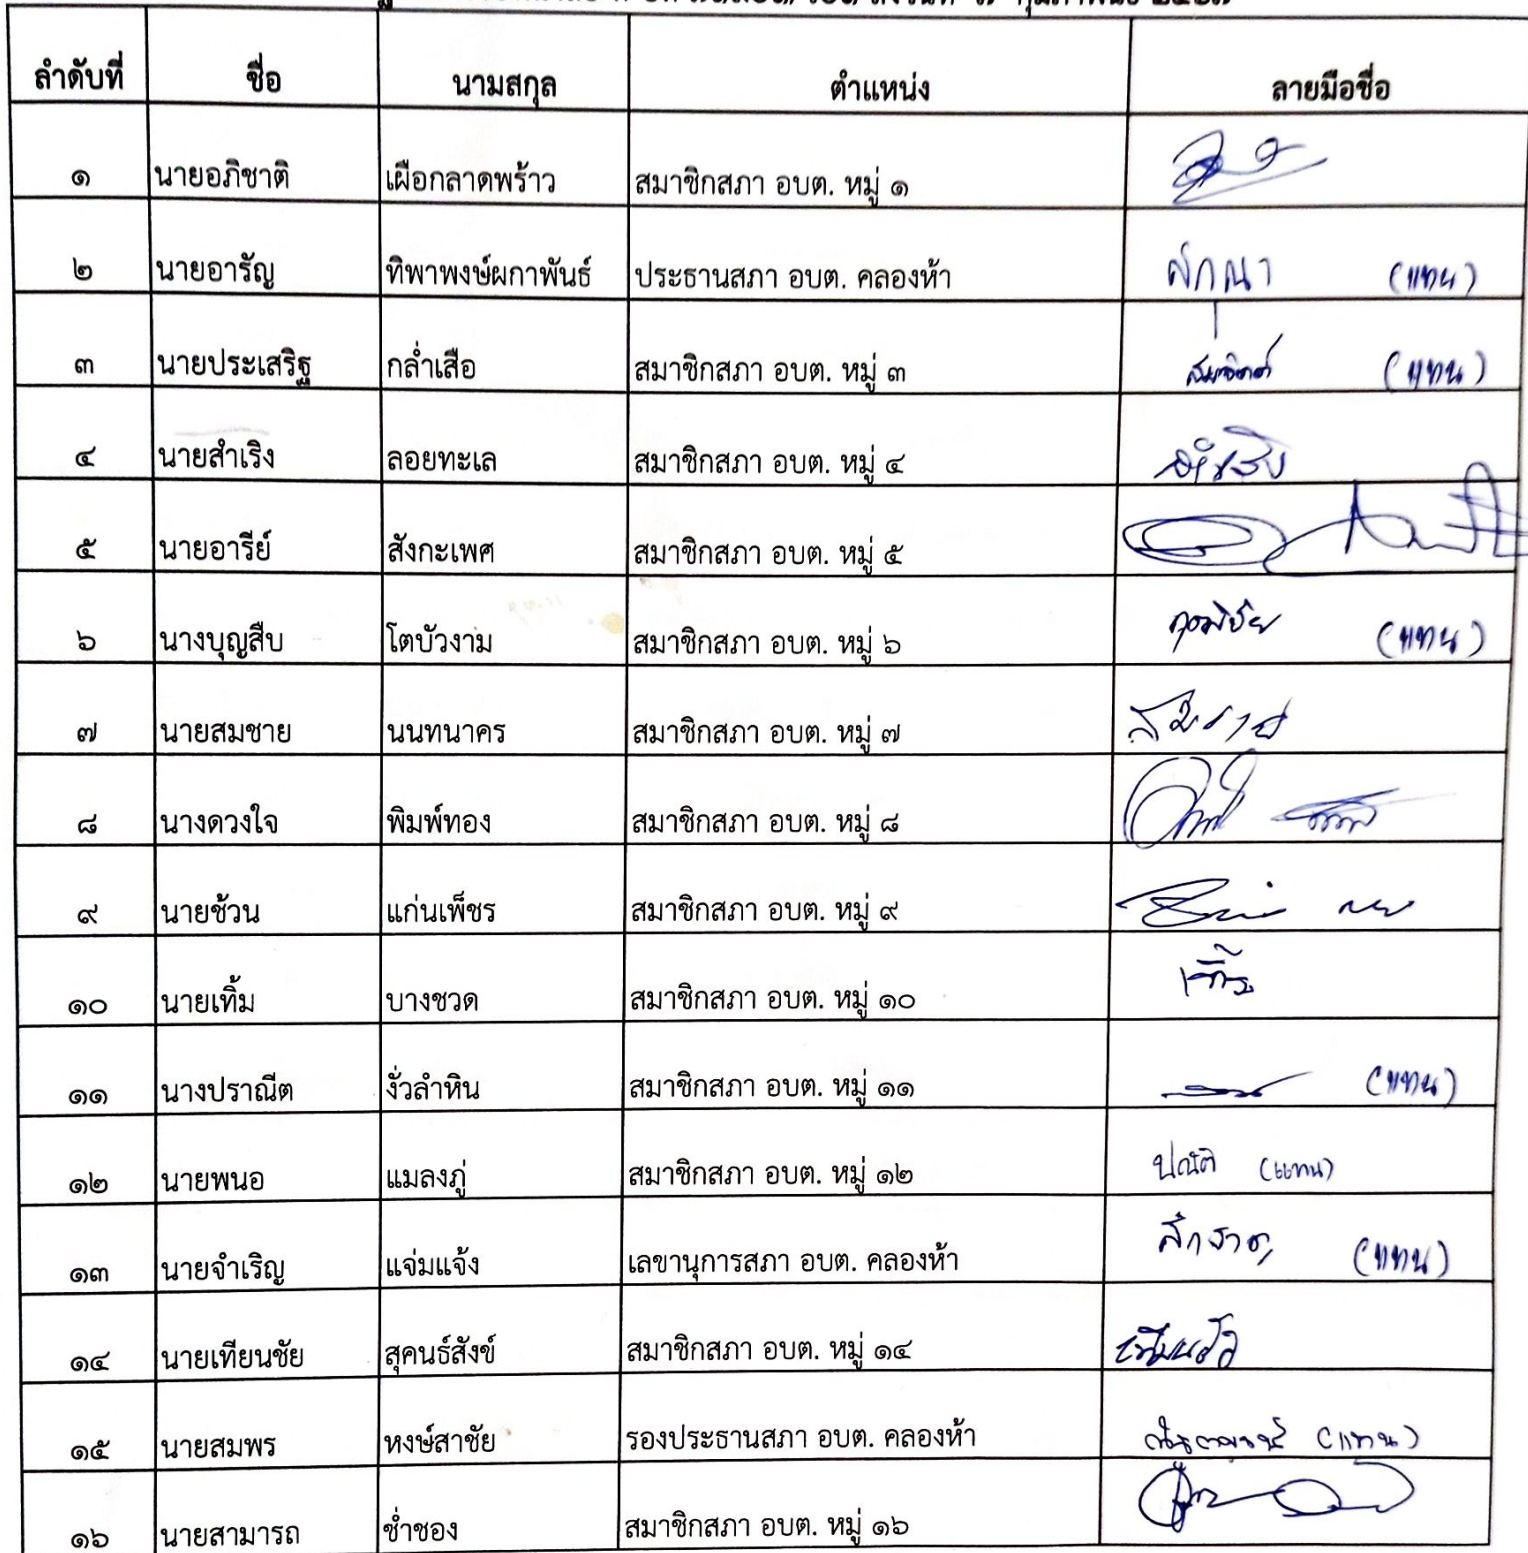 ลำดับที่ ชื่อ นามสกุล ตำแหน่ง ลายมือชื่อ
๑ นายอภิชาติ เผือกลาดพร้าว สมาชิกสภา อบต. หมู่ ๑
๒ นายอารัญ ทิพาพงษ์ผกาพันธ์ ประธานสภา อบต. คลองห้า (แทน)
๓ นายประเสริฐ กล่ำเสือ สมาชิกสภา อบต. หมู่ ๓ สมจิตต์ (แทน)
๔ นายสำเริง ลอยทะเล สมาชิกสภา อบต. หมู่ ๔
๕ นายอารีย์ สังกะเพศ สมาชิกสภา อบต. หมู่ ๕
๖ นางบุญสืบ โตบัวงาม สมาชิกสภา อบต. หมู่ ๖ (แทน)
๗ นายสมชาย นนทนาคร สมาชิกสภา อบต. หมู่ ๗ สมชาย
๘ นางดวงใจ พิมพ์ทอง สมาชิกสภา อบต. หมู่ ๘
๙ นายช้วน แก่นเพ็ชร สมาชิกสภา อบต. หมู่ ๙
๑๐ นายเทิ้ม บางชวด สมาชิกสภา อบต. หมู่ ๑๐ เทิ้ม
๑๑ นางปราณีต งั่วลำหิน สมาชิกสภา อบต. หมู่ ๑๑ (แทน)
๑๒ นายพนอ แมลงภู่ สมาชิกสภา อบต. หมู่ ๑๒ (แทน)
๑๓ นายจำเริญ แจ่มแจ้ง เลขานุการสภา อบต. คลองห้า (แทน)
๑๔ นายเทียนชัย สุคนธ์สังข์ สมาชิกสภา อบต. หมู่ ๑๔ เทียนชัย
๑๕ นายสมพร หงษ์สาชัย รองประธานสภา อบต. คลองห้า (แทน)
๑๖ นายสามารถ ช่ำชอง สมาชิกสภา อบต. หมู่ ๑๖